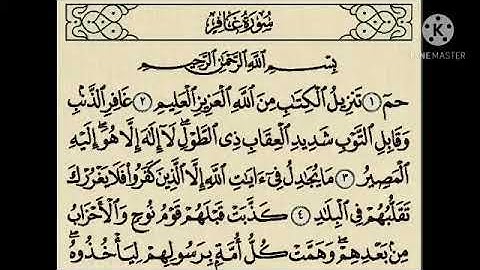 سُورَةُ غَافِرٍ
KINEMASTER
بِسْمِ ٱللَّهِ ٱلرَّحْمَٰنِ ٱلرَّحِيمِ
حمٓ ١ تَنزِيلُ ٱلْكِتَٰبِ مِنَ ٱللَّهِ ٱلْعَزِيزِ ٱلْعَلِيمِ ٢ غَافِرِ ٱلذَّنۢبِ
وَقَابِلِ ٱلتَّوْبِ شَدِيدِ ٱلْعِقَابِ ذِى ٱلطَّوْلِ ۖ لَآ إِلَٰهَ إِلَّا هُوَ ۖ إِلَيْهِ
ٱلْمَصِيرُ ٣ مَا يُجَٰدِلُ فِىٓ ءَايَٰتِ ٱللَّهِ إِلَّا ٱلَّذِينَ كَفَرُوا۟ فَلَا يَغْرُرْكَ
تَقَلُّبُهُمْ فِى ٱلْبِلَٰدِ ٤ كَذَّبَتْ قَبْلَهُمْ قَوْمُ نُوحٍ وَٱلْأَحْزَابُ
مِنۢ بَعْدِهِمْ ۖ وَهَمَّتْ كُلُّ أُمَّةٍۭ بِرَسُولِهِمْ لِيَأْخُذُوهُ ۖ